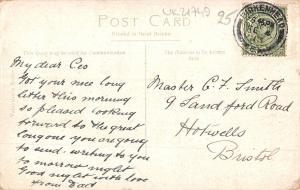 POST CARD
Printed in Great Britain
This space may be used for Communication
The Address to be written here
25
BIRKENHEAD
My dear Ceo
Got your nice long
letter this morning
so pleased looking
forward to the great
long one you are going
to send. writing to you
to morrow night
Good night with love
from Dad
Master C. F. Smith
9 Sandford Road
Hotwells
Bristol